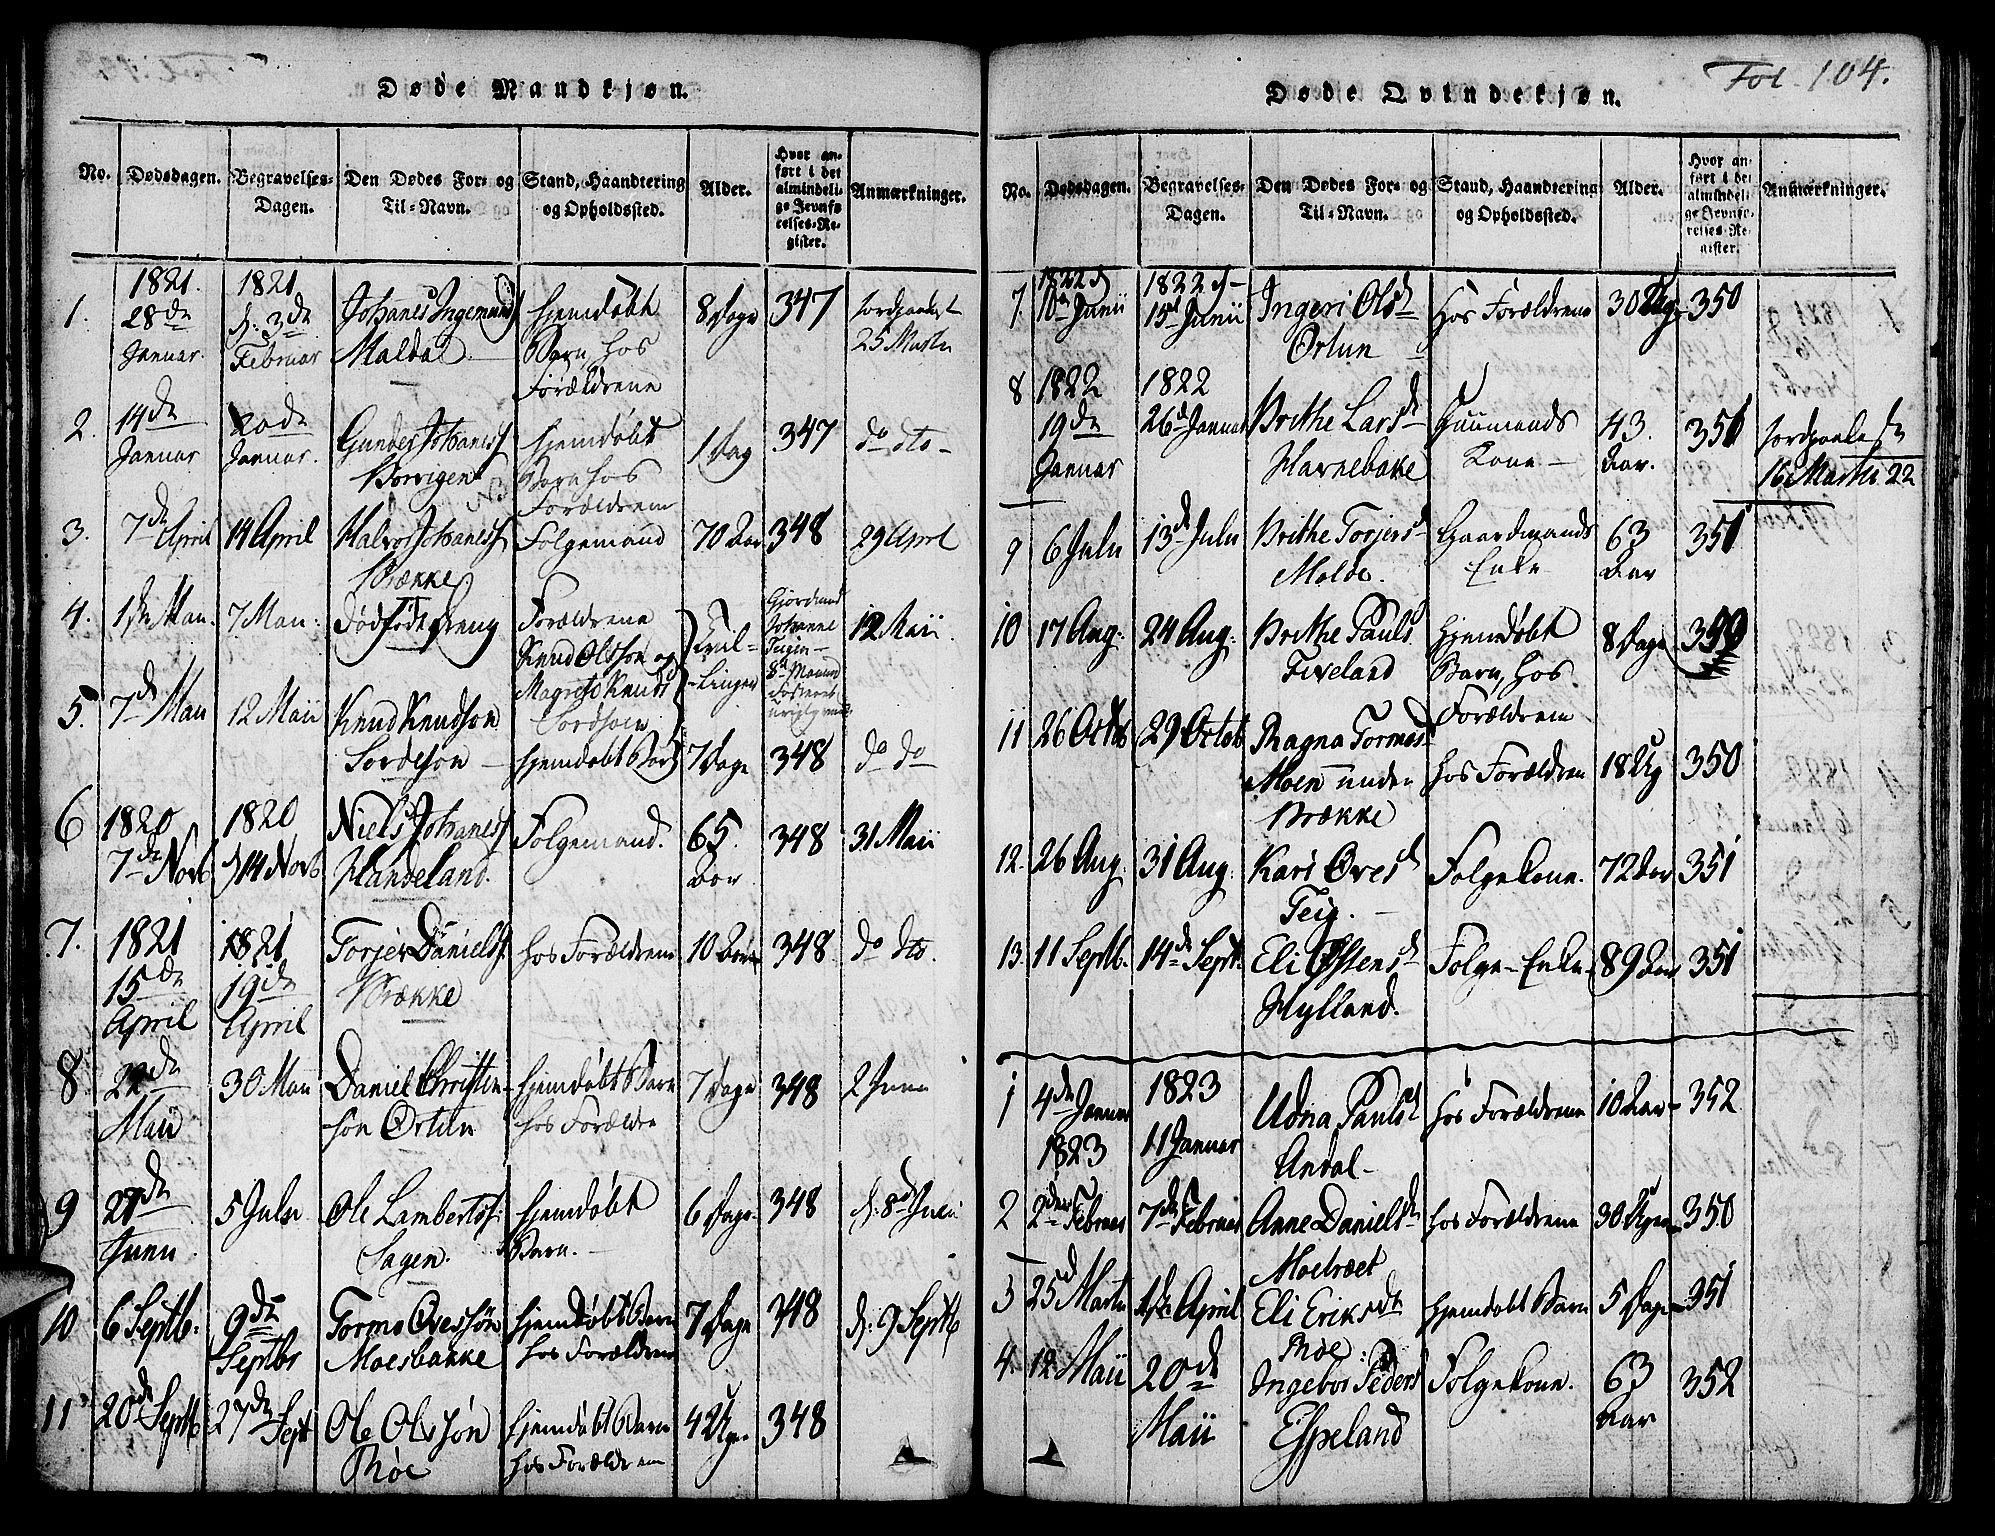 Døde Mandkjøn.
No. Dødsdagen. Begravelses-Dagen. Den Dødes For- og Til-Navn. Stand, Haandtering og Opholdssted. Alder. Hvor anført i det almindelige Jevnførelses-Register. Anmærkninger.
1. 1821. 28de Januar. 1821 d: 3de Februar Johanes Ingemunds Maldal hjemdøbt Barn, hos Forældrene 8 Dage 347 25 Martii
2. 14de Januar 20de Januar. Gunder Johaness Borrigen hjemdøbt Barn hos Forældrene 1 Dag 347 do dto
3. 7de April 14 April Halvor Johaness Brække Folgemand 70 Aar 348 29 April
4. 1ste Maii. 7 Maii Dødfødt dreng Forældrene Knud Olsson og Magrete Knuds Sordsoen Tvil-linger 12 Maii.
5. 7de Maii 12 Maii Knud Knudson Sordsoen hjemdøbt Barn 7 Dage 348 do do
6 1820 7de Novb 1820 d 14 Novb Niels Johaness Handeland. Folgemand. 65. Aar 348 31 Maii
7. 1821 15de April 1821 19de April Torjer Daniels. Brække hos Forældrene 10 Aar 348 do dto.
8. 22de Maii 30 Maii Daniel Christen-son Ortun hjemdøbt Barn hos Forældre 7 Dage 348 2 Junii
9 27de Junii 5 Julii Ole Lamberts. Sagen. hjemdøbt Barn. 6 Dage 348 d: 8de Julii
10 6 Septb. 9de Septbr Tormo Ovessøn Moesbakke hjemdøbt Barn hos Forældrene 7 Dage 348 d: 9 Septb
11 20de Septb 27de Sept Ole Olssøn Røe hjemdøbt Barn hos Forældrene 4 Uger. 348
Fol. 104.
Døde Qvindekjøn.
No. Dødsdagen. Begravelses-Dagen. Den Dødes For- og Til-Navn. Stand, Haandtering og Opholdssted. Alder. Hvor anført i det almindelige Jevnførelses-Register. Anmærkninger.
7. 1822 10de Junii 1822 15de Junii Ingeri Olsd Ortun hos Forældrene 30 Uger 350
8 1822 19de Januar 1822 26de Januar Brithe Larsd Havnebake Huusmands Kone 43. Aar. 351 16 Martii 22
9 6 Julii 13de Julii Brithe Torjersd Molde. Gaardmands Enke 63 Aar 351
10 17 Aug: 24 Aug: Brithe Paulsd Fiveland hjemdøbt Barn, hos Forældrene 8 Dage 350
11 26 Octbr 29 Octob Ragna Tormosd Moen under Brække hos Forældrene 18 Ug 350
12. 26 Aug. 31 Aug. Kari Ovesd Teig. Folgekone. 72 Aar 351
13. 11 Septb. 14de Sept. Eli Østensd Hylland. Folge-Enke 89 Aar 351
1 4de Januar 1823 1823 11 Januar Udna Paulsd Andal hos Forældrene 10 Aar 352
2 2den Februar 7de Februar Anne Danielsd Moetræet hos Forældrene 30 Uger 350
3 25de Martii 1ste April Eli Eriksdt Røe. hjemdøbt Barn 5 Dage 351
4. 12 Maii 20de Maii Ingebor Pedersd Espeland Folgekone. 63 Aar 352